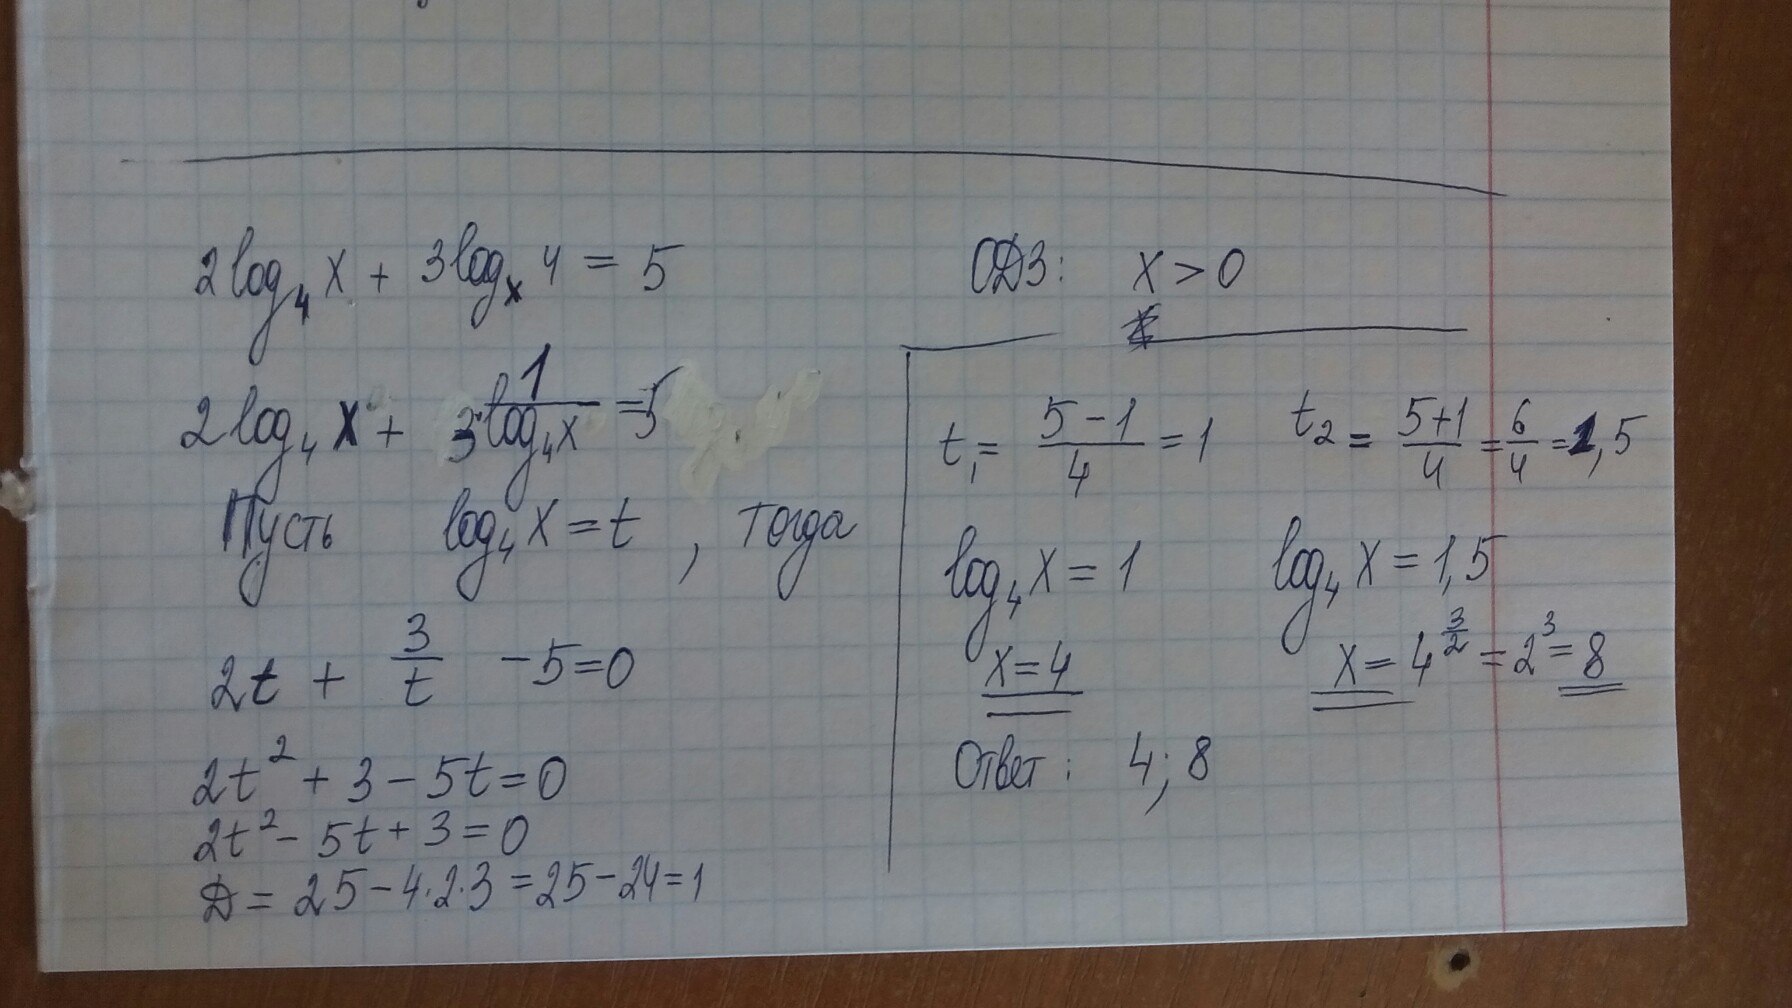 2log₄ x + 3logₓ 4 = 5
2log₄ x + 3·1/log₄x = 5
Пусть log₄ x = t , тогда
2t + 3/t - 5 = 0
2t² + 3 - 5t = 0
2t² - 5t + 3 = 0
D = 25 - 4·2·3 = 25 - 24 = 1
ОДЗ: x > 0
t₁ = (5 - 1)/4 = 1 t₂ = (5+1)/4 = 6/4 = 1,5
log₄ x = 1 log₄ x = 1,5
x = 4 x = 4^(3/2) = 2³ = 8
Ответ: 4; 8